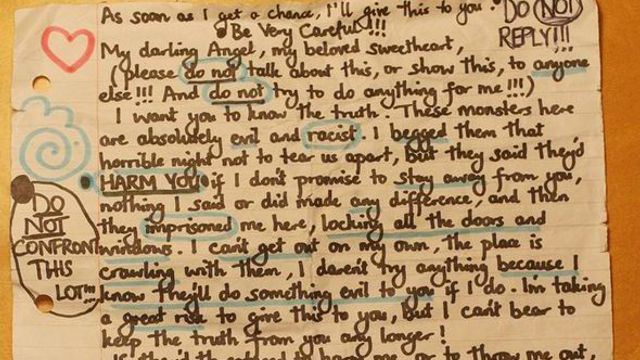 As soon as I get a chance, I'll give this to you. DO NOT
• Be Very Careful!!! REPLY!!!
My darling Angel, my beloved sweetheart,
(please do not talk about this, or show this, to anyone
else!!! And do not try to do anything for me!!!)
I want you to know the truth. These monsters here
are absolutely evil and racist. I begged them that
horrible night not to tear us apart, but they said they'd
HARM YOU if I don't promise to stay away from you,
nothing I said or did made any difference, and then
they imprisoned me here, locking all the doors and
windows. I can't get out on my own, the place is
crawling with them, I daren't try anything because I
know they'll do something evil to you if I do. I'm taking
a great risk to give this to you, but I can't bear to
keep the truth from you any longer!
to throw me out
DO
NOT
CONFRONT
THIS
LOT!!!